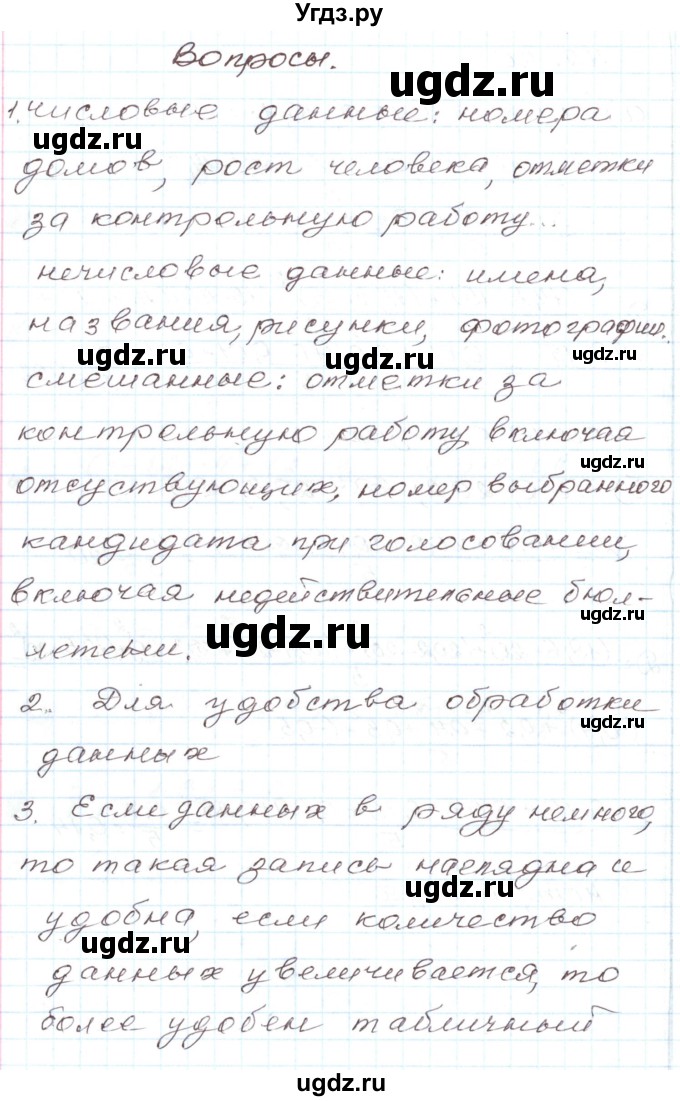 Угдз.ру
Вопросы.
ugdz.ru
1. числовые данные: номера
ugdz.ru
домов, рост человека, отметки
за контрольную работу...
нечисловые данные: имена,
названия, рисунки, фотографии.
ugdz.ru ugdz.ru
смешанные: отметки за
контрольную работу, включая
ugdz.ru
отсуствующих, номер выбранного
ugdz.ru
кандидата при голосовании,
включая недействительные бюл-
ugdz.ru
летени.
2. Для удобства обработки
ugdz.ru
данных
3. Если данных в ряду немного,
то такая запись наглядна и
ugdz.ru
удобна, если количество
ugdz.ru
данных увеличивается, то
более удобен табличный
ugdz.ru